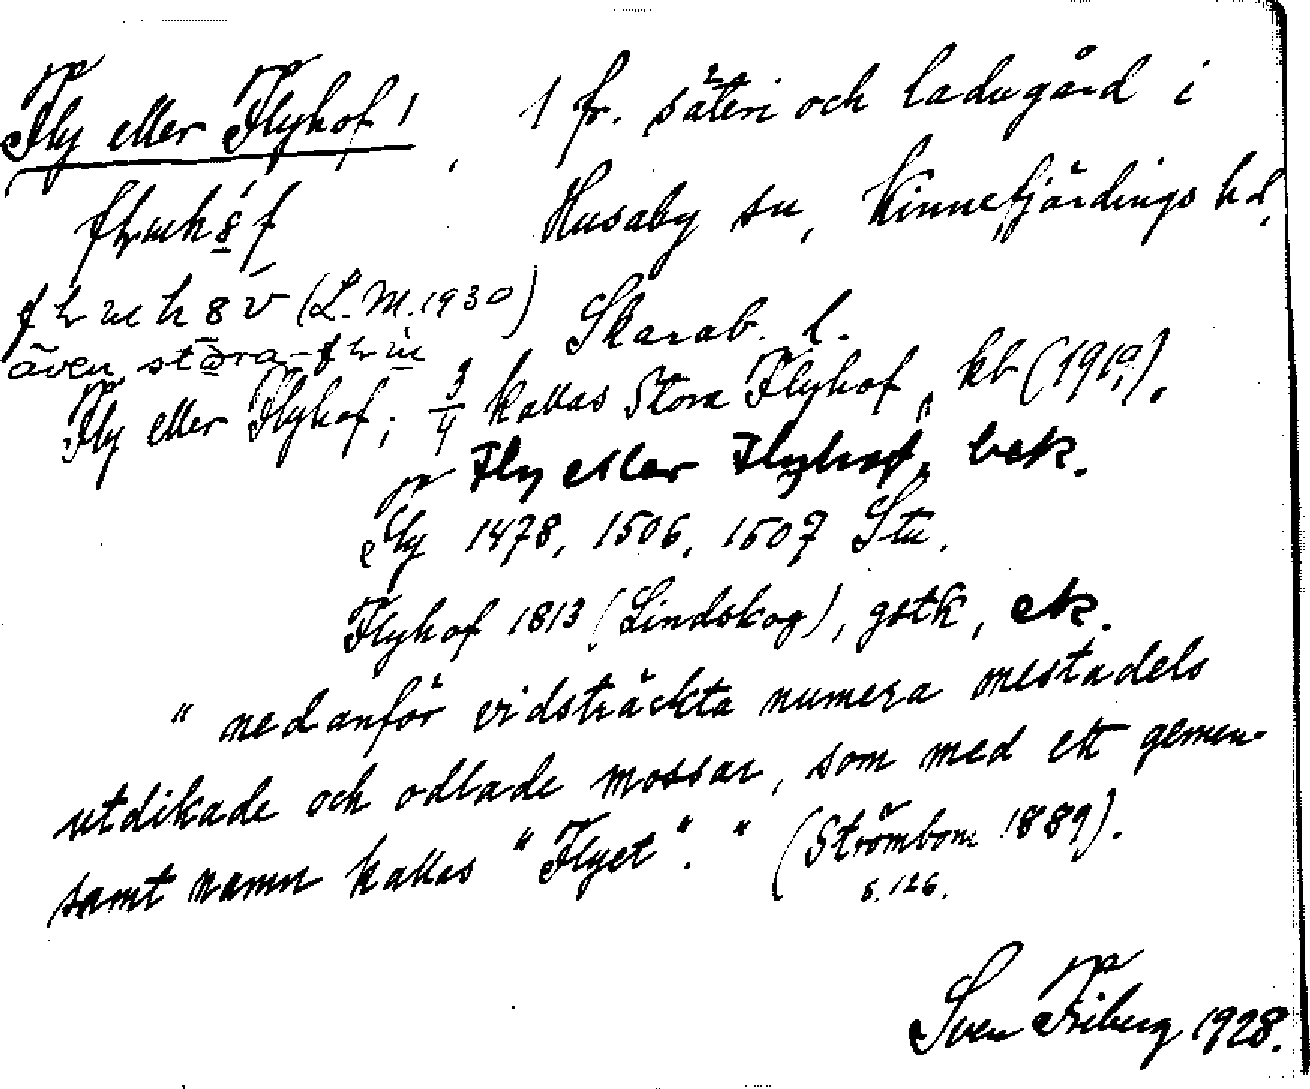 Fly eller Flyhof, 1 fr. säteri och ladugård i
Husaby sn, Kinnefjärdings hd,
(L. M. 1930) Skarab. l.
även stora
Fly eller Flyhof; 3/4 kallas Stora Flyhof, kb (1919).
Fly eller Flyhof, bek.
Fly 1478, 1506, 1507 Stu.
Flyhof 1813 (Lindskog), gstk, ek.
" nedanför vidsträckta numera mestadels
utdikade och odlade mossar, som med ett gemen-
samt namn kallas "Flyet"." (Strömbom 1889).
s. 126.
Sven Friberg 1928.